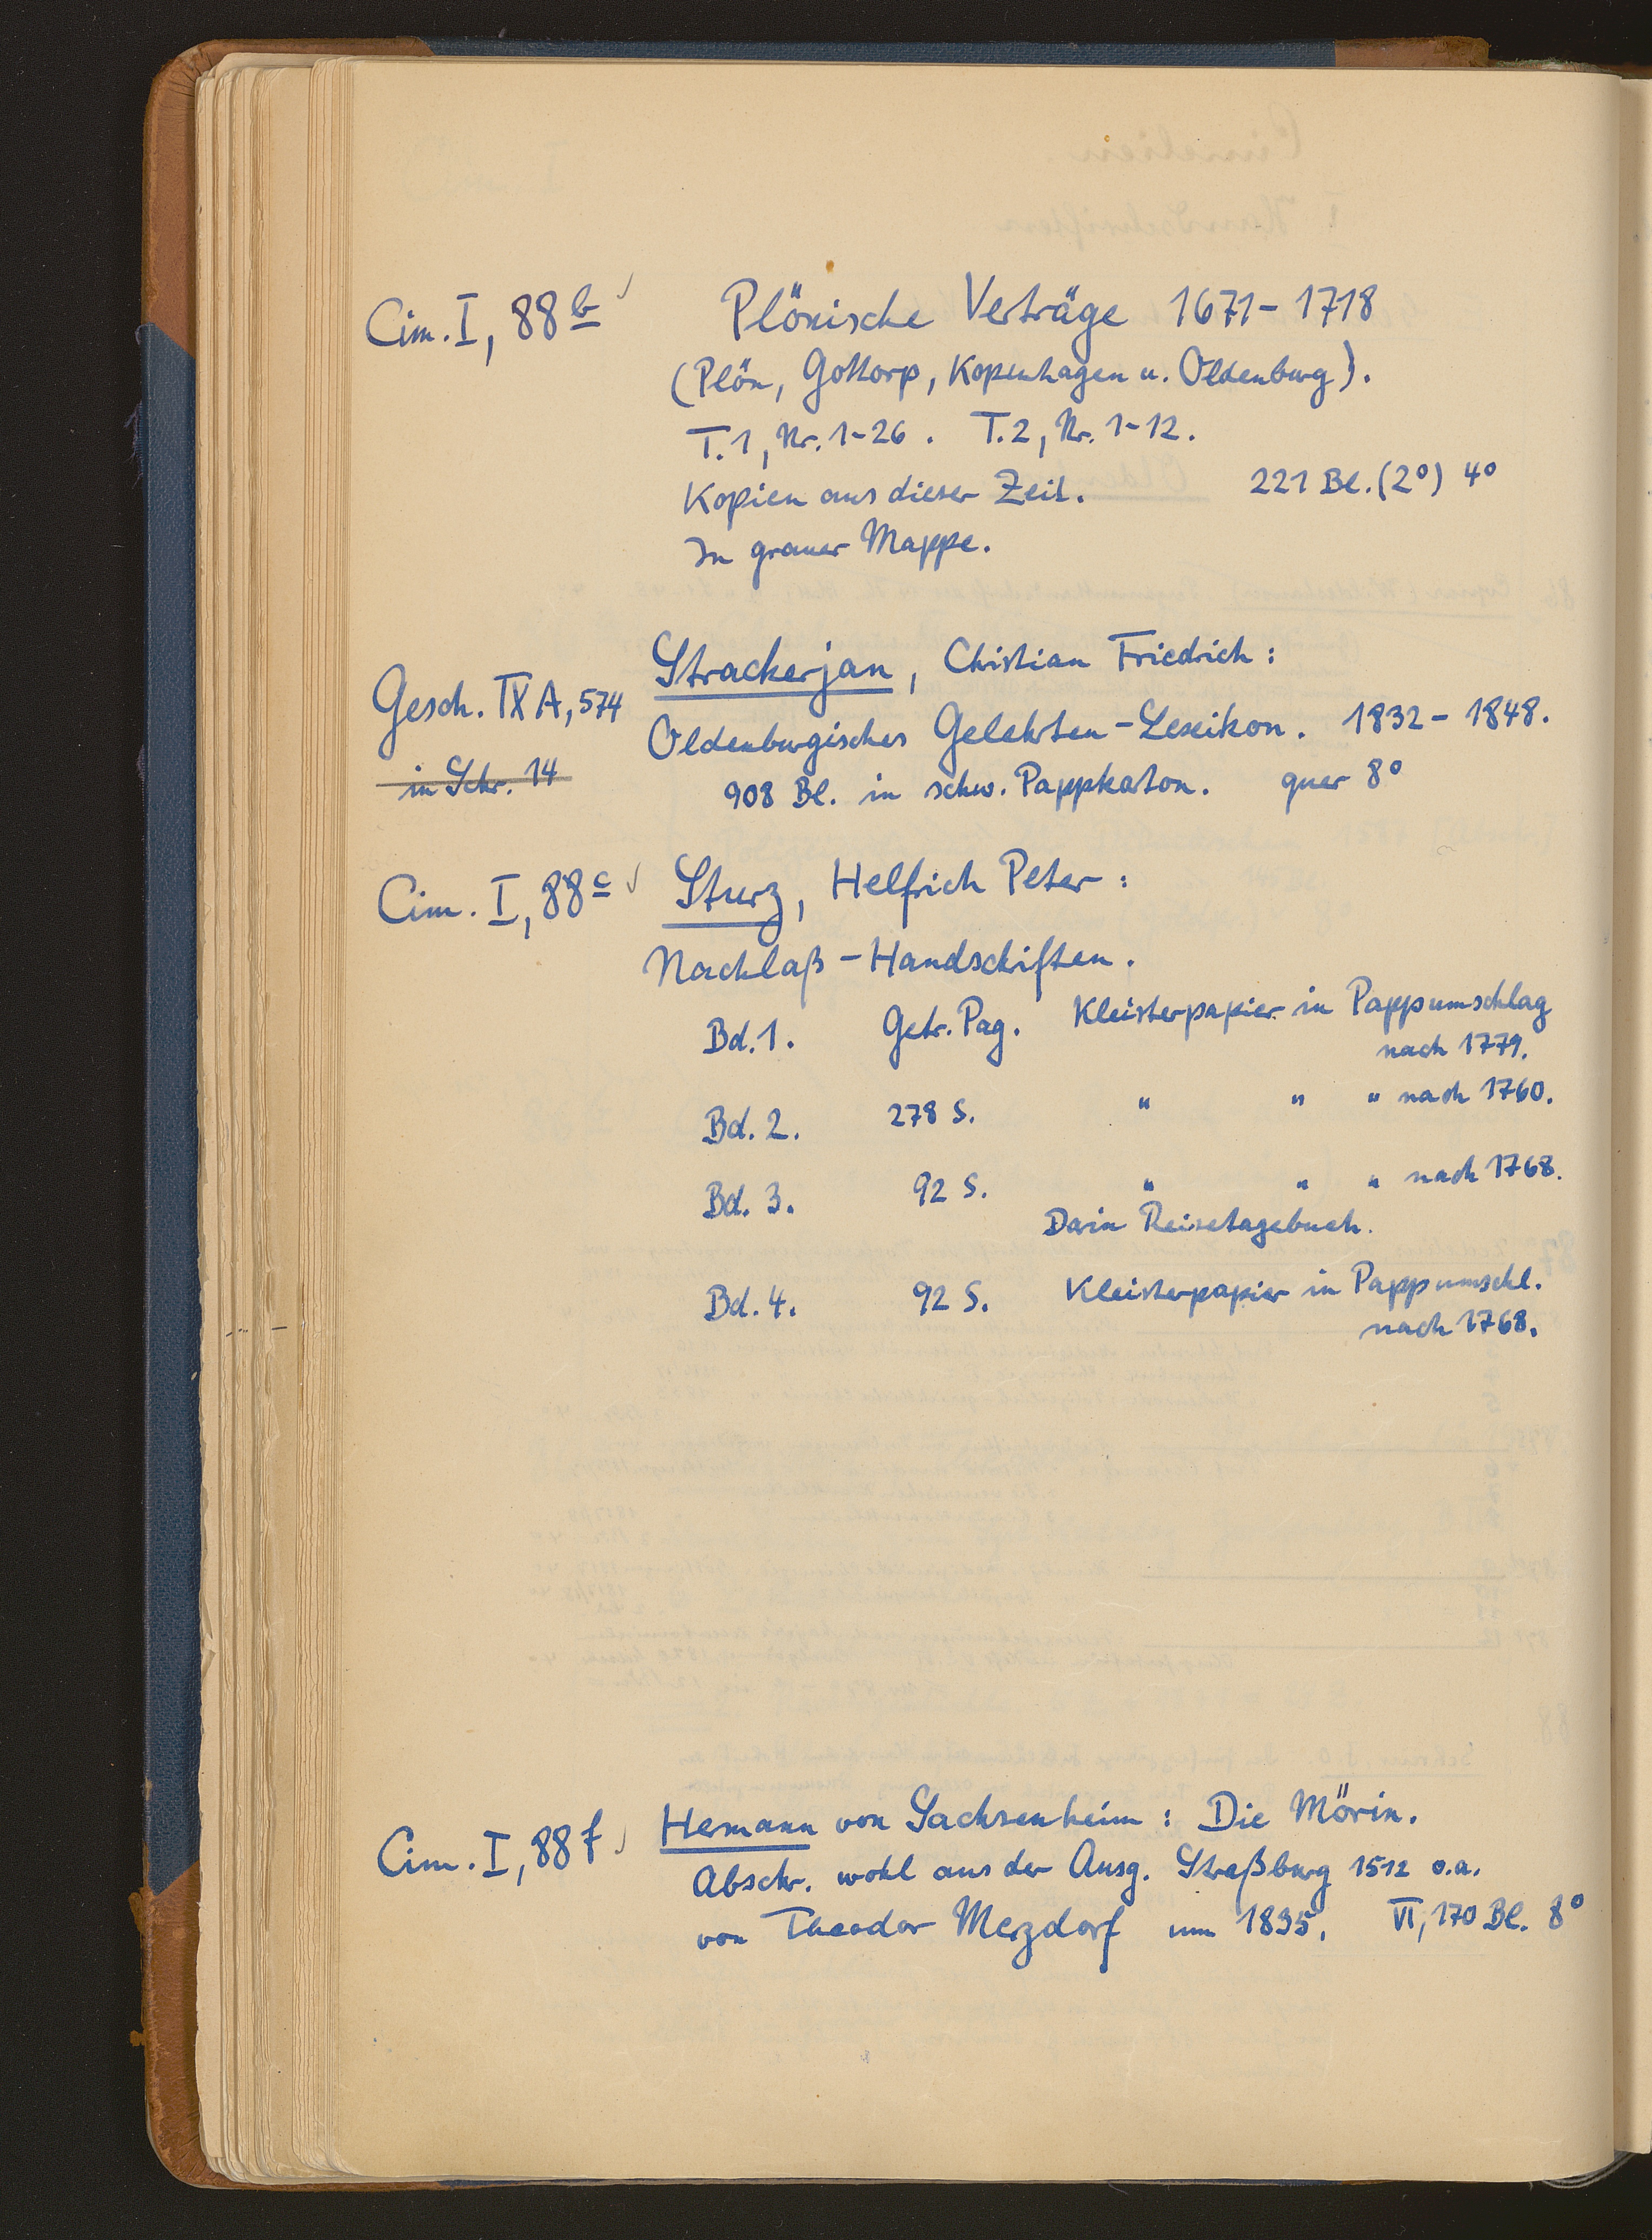 Cim. I, 88 b ✓ Plönische Verträge 1671-1718
(Plön, Gottorp, Kopenhagen u. Oldenburg).
T. 1, Nr. 1-26. T. 2, Nr. 1-12.
Kopien aus dieser Zeit. 221 Bl. (2°) 4°
In grauer Mappe.
Strackerjan, Christian Friedrich:
Gesch. IX A, 574
Oldenburgisches Gelehrten-Lexikon. 1832-1848.
in Schr. 14
908 Bl. in schw. Pappkarton. quer 8°
Cim. I, 88 c ✓ Sturz, Helfrich Peter:
Nachlaß-Handschriften.
Bd. 1. Getr. Pag. Kleisterpapier in Pappumschlag
nach 1779.
Bd. 2. 278 S. " " " nach 1760.
Bd. 3. 92 S. " " " nach 1768.
Darin Reisetagebuch.
Bd. 4. 92 S. Kleisterpapier in Pappumschl.
nach 1768.
Cim. I, 88 f ✓ Hermann von Sachsenheim: Die Mörin.
Abschr. wohl aus der Ausg. Straßburg 1512 o.a.
von Theodor Merzdorf um 1835. VI, 170 Bl. 8°